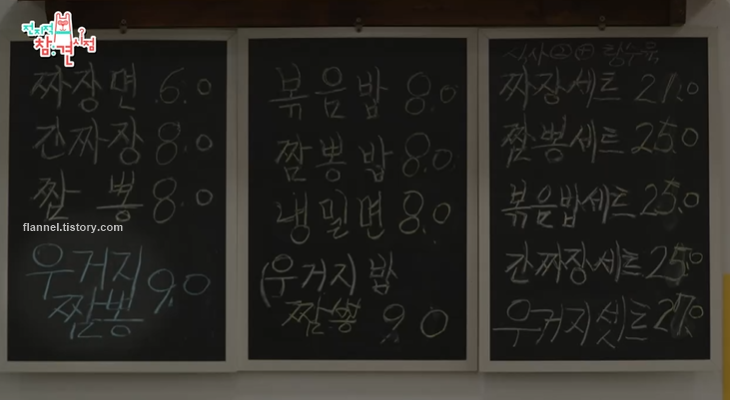 전지적
참견시점
짜장면 6.0
간짜장 8.0
짬뽕 8.0
flannel.tistory.com
우거지
짬뽕 9.0
볶음밥 8.0
짬뽕밥 8.0
냉밀면 8.0
(우거지밥
짬뽕 9.0
식사②+탕수육
짜장세트 21.0
짬뽕세트 25.0
볶음밥세트 25.0
간짜장세트 25.0
우거지셋트 27.0